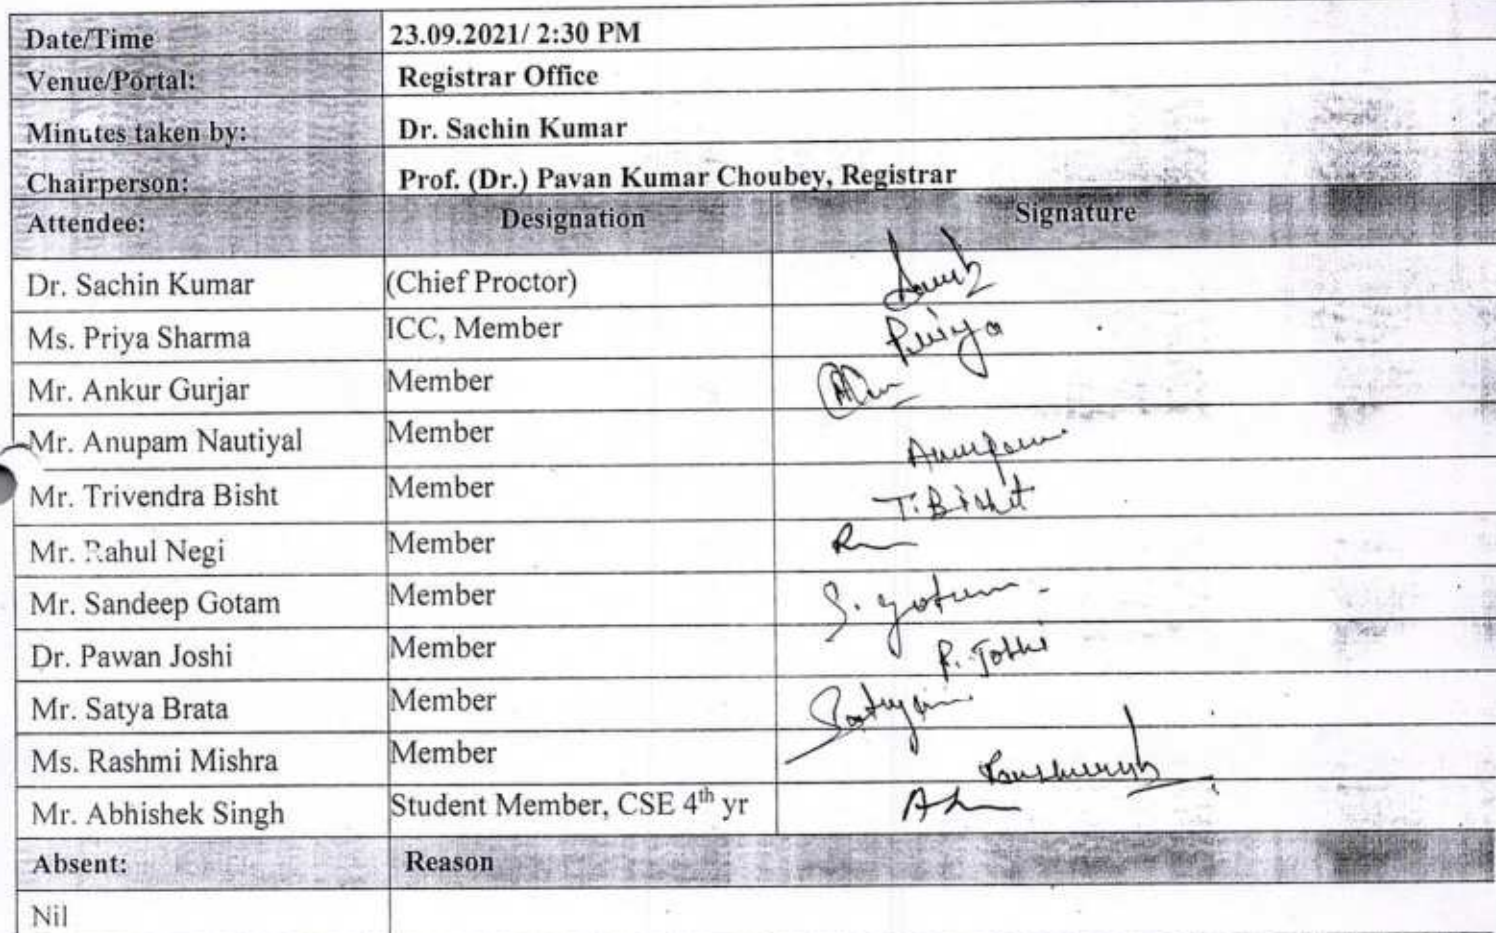 Date/Time 23.09.2021/ 2:30 PM
Venue/Portal: Registrar Office
Minutes taken by: Dr. Sachin Kumar
Chairperson: Prof. (Dr.) Pavan Kumar Choubey, Registrar
Attendee: Designation Signature
Dr. Sachin Kumar (Chief Proctor)
Ms. Priya Sharma ICC, Member Priya
Mr. Ankur Gurjar Member
Mr. Anupam Nautiyal Member Anupam
Mr. Trivendra Bisht Member T. Bisht
Mr. Rahul Negi Member
Mr. Sandeep Gotam Member S. Gotam
Dr. Pawan Joshi Member P. Joshi
Mr. Satya Brata Member
Ms. Rashmi Mishra Member
Mr. Abhishek Singh Student Member, CSE 4th yr
Absent: Reason
Nil